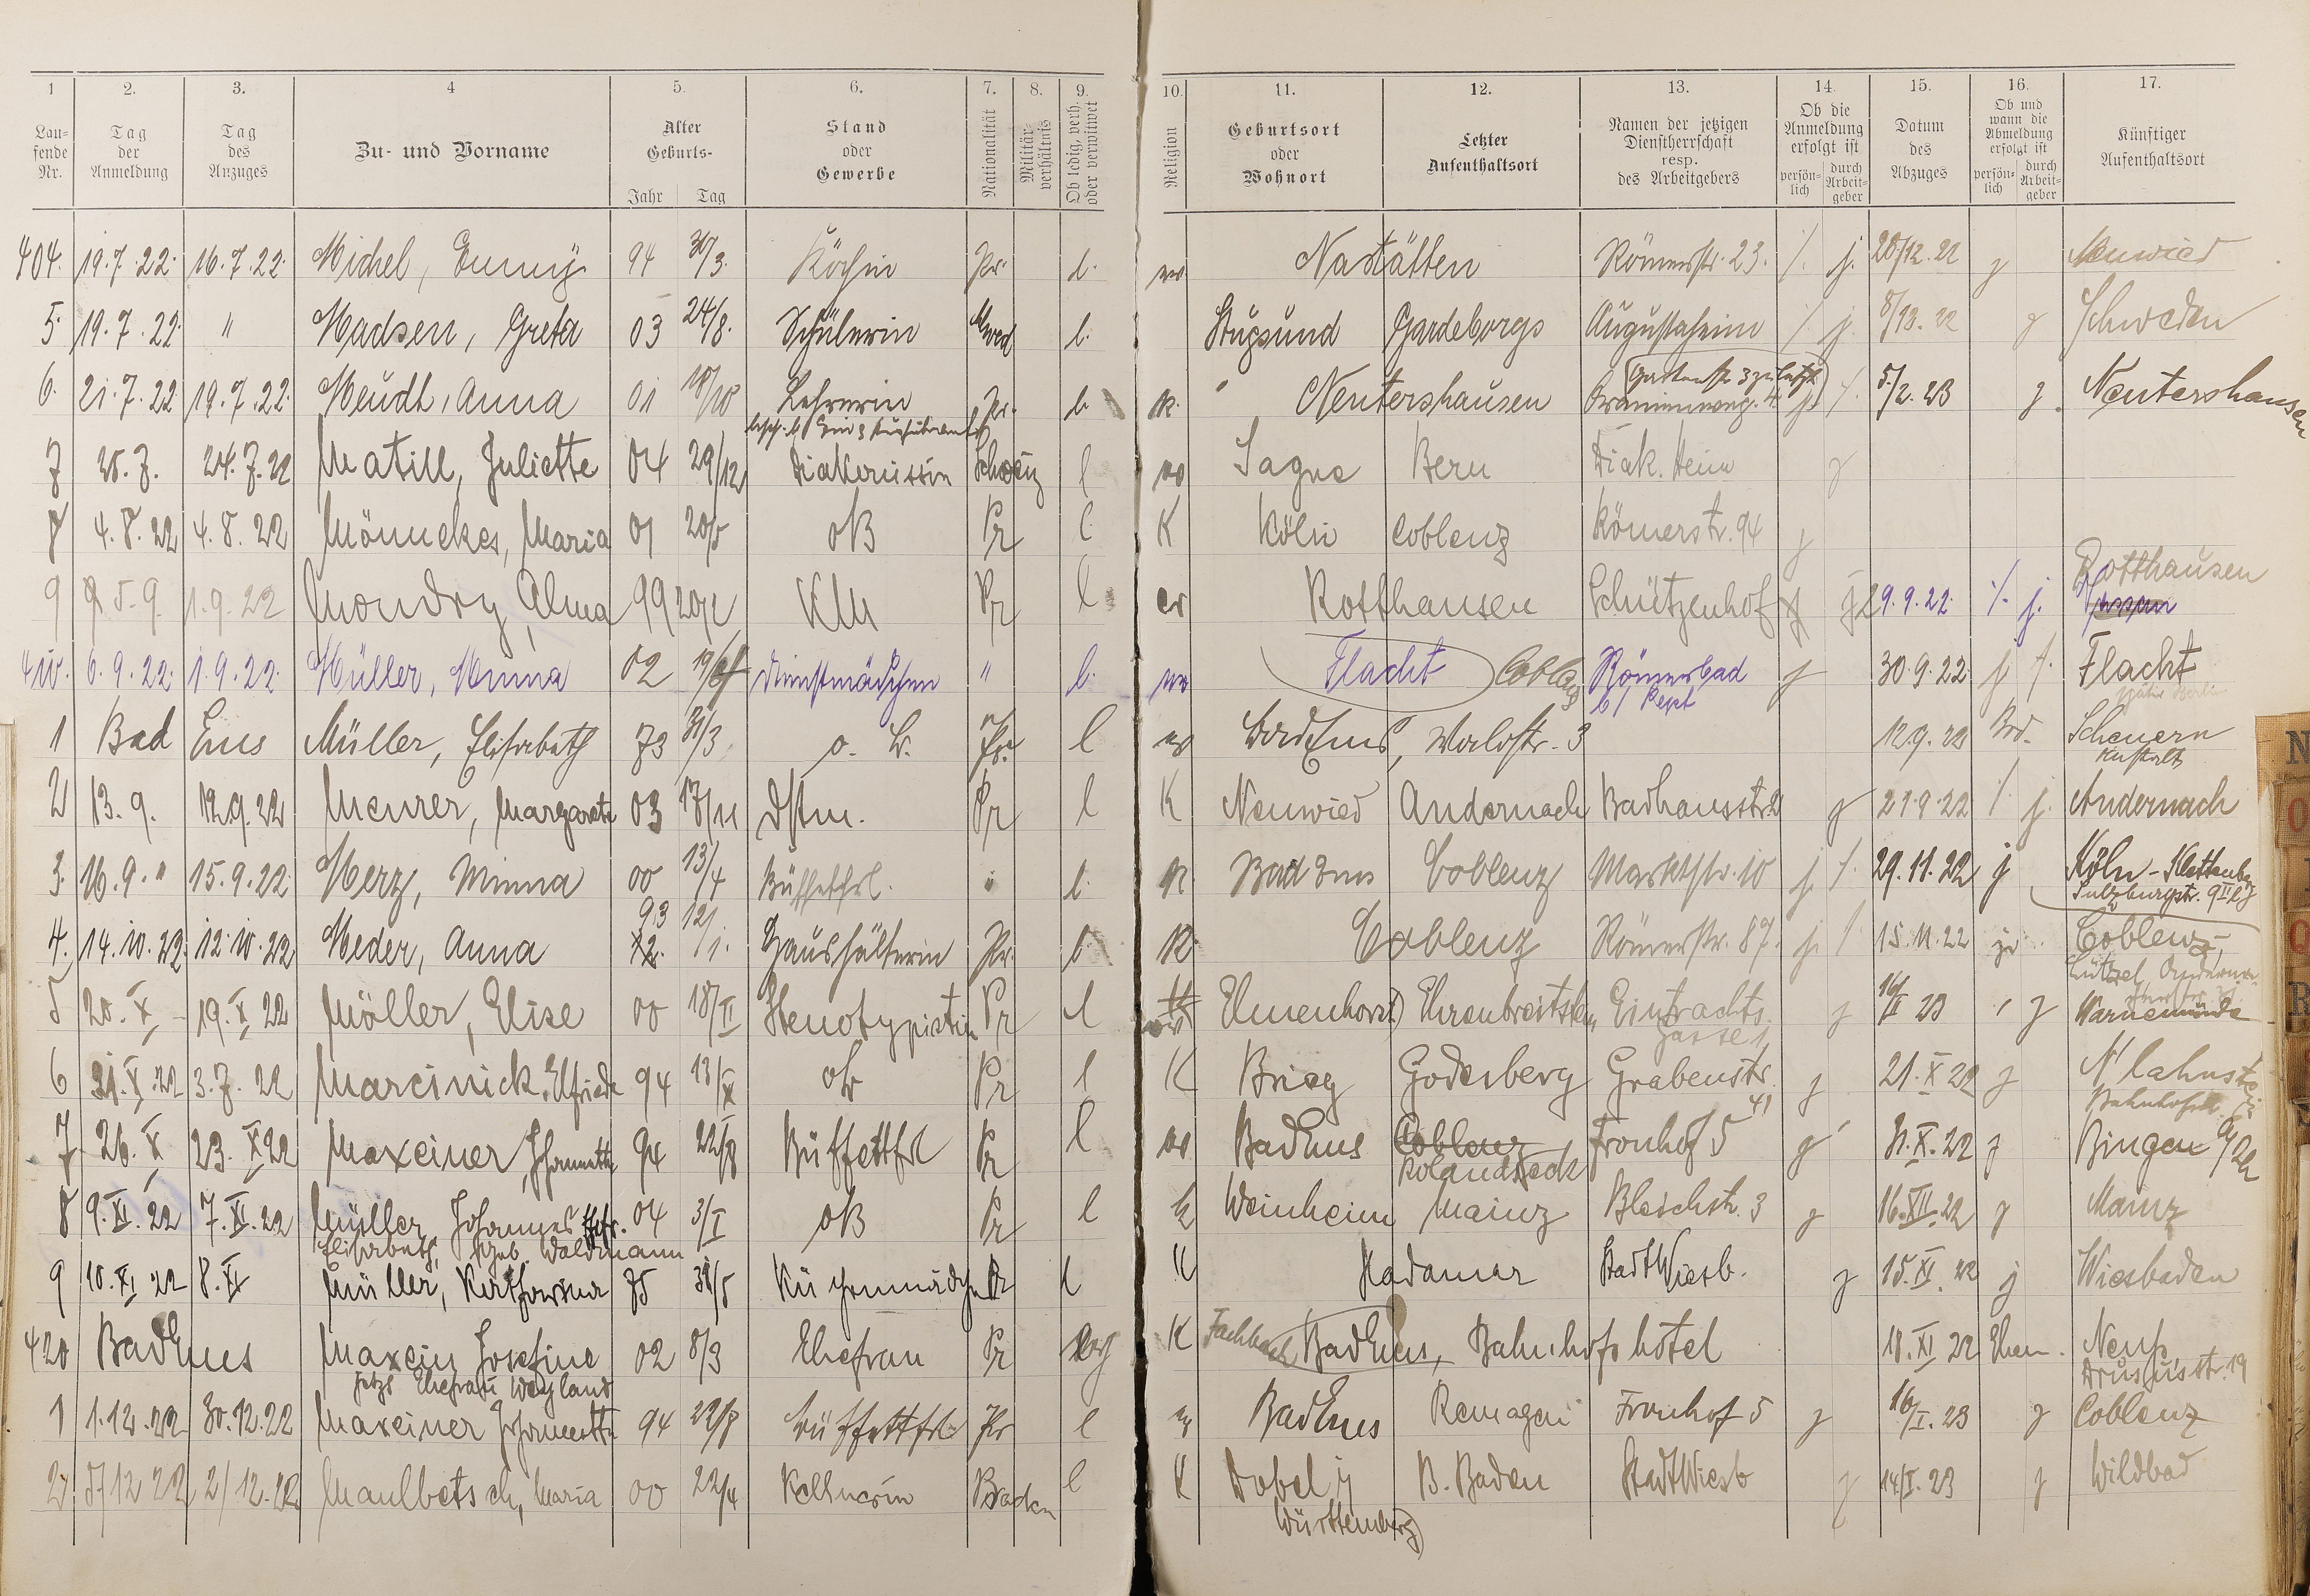 1 2. 3. 4 5. 6. 7. 8. 9. 10. 11. 12. 13. 14. 15. 16. 17.
Lau-
fende
Nr.
Tag
der
Anmeldung
Tag
des
Anzuges
Zu- und Vorname
Alter
Geburts-
Jahr Tag
Stand
oder
Gewerbe
Nationalität
Militär-
verhältnis
Ob ledig, verh.
oder verwitwet
Religion
Geburtsort
oder
Wohnort
Letzter
Aufenthaltsort
Namen der jetzigen
Dienstherrschaft
resp.
des Arbeitgebers
Ob die
Anmeldung
erfolgt ist
persön-
lich
durch
Arbeit-
geber
Datum
des
Abzuges
Ob und
wann die
Abmeldung
erfolgt ist
persön-
lich
durch
Arbeit-
geber
Künftiger
Aufenthaltsort
404. 19.7.22. 16.7.22. Michel, Emmy 94 30/3. Köchin Pr. l. Nastätten Römerstr. 23. j. 20/12.22 j Neuwied
5. 19.7.22. " Madsen, Greta 03 24/8. Schülerin l. Stugsund Gardeborgs Augustaheim j. j Schweden
6. 21.7.22 19.7.22. Meudt, Anna 01 18/10 Lehrerin Pr. l. K. Nentershausen Oranienweg. 4. j. 5/2.23 j. Nentershausen
7 24.7.22 Matill, Juliette 04 29/12 Diakonissin Schweiz l Sagne Bern Diak. Heim j
8 4.8.22 4.8.22 Mönnekes, Maria 01 20/5 oB Pr l K Köln Coblenz Römerstr. 94 j
9 5.9. 1.9.22 Mondry, Alma 99 Pr l ev Rotthausen Schützenhof 29.9.22. j. Rotthausen
410. 6.9.22. 1.9.22. Müller, Minna 02 Dienstmädchen " l. Flacht Coblenz Römerbad j 30.9.22 j Flacht
b/ Pept
später Berlin
1 Bad Ems Müller, Elisabeth 73 31/3 o. B. Pr. l Bad Ems, Waldstr. 3 12.9.22 Scheuern
Anstalt
2 13.9. 12.9.22 Meurer, Margarete 03 17/11 Dstm. Pr l K Neuwied Andernach Badhausstr 2 j 27.9.22 j. Andernach
3. 16.9." 15.9.22. Merz, Minna 00 13/4 Büffettfrl. " l. K. Bad Ems Coblenz Marktstr. 10 j. 29.11.22 j Köln-Klettenberg
Sulzburgstr. 9
4. 14.10.22. 12.10.22 Meder, Anna 93 12/1. Haushälterin Pr. l. K Coblenz Römerstr. 87. j. 15.11.22 Coblenz,
Lützel
5 20.X 19.X 22 Möller, Elise 00 18/II Stenotypistin Pr l Elmenhorst Ehrenbreitstein Eintrachts. j 16/II 23 j Warnemünde
gasse 1
6 3.7.22 Marcinick, Elfriede 94 13/X oB Pr l K Brieg Godesberg Grabenstr. 41 j 21.X 22 j N'lahnstein
Bahnhofstr.
7 26.X 23.X 22 Maxeiner, Johannette 94 22/8 Büffettfrl Pr l Bad Ems Coblenz Fronhof 5 j 31.X.22 j Bingen a/Rh
Rolandseck
8 9.XI.22 7.XI.22 Müller, Johannes Ehfr. 04 3/I oB Pr l k Weinheim Mainz Bleichstr. 3 j 16.XII.22 j Mainz
Elisabeth, geb. Waldmann
9 10.XI 22 8.XI Müller, Katharina 75 31/5 Küchenmädchen Pr l K Hadamar Stadt Wiesb. j 15.XI.22 j Wiesbaden
420 Bad Ems Maxein Josefine 02 8/3 Ehefrau Pr K Fachbach Bad Ems, Bahnhofshôtel 18.XI 22 Ehem. Neuß,
jetzt Ehefrau Weyland
Drususstr. 19
1 1.12.22 30.12.22 Maxeiner Johannette 94 22/8 Büffettfrl. Pr l Bad Ems Remagen Fronhof 5 j 16/I.23 j Coblenz
2. 5/12 22 2/12.22 Maulbetsch, Maria 00 22/4 Kellnerin Baden l K Dobel i/ B. Baden Stadt Wiesb j 14/I.23 j Wildbad
Württemberg